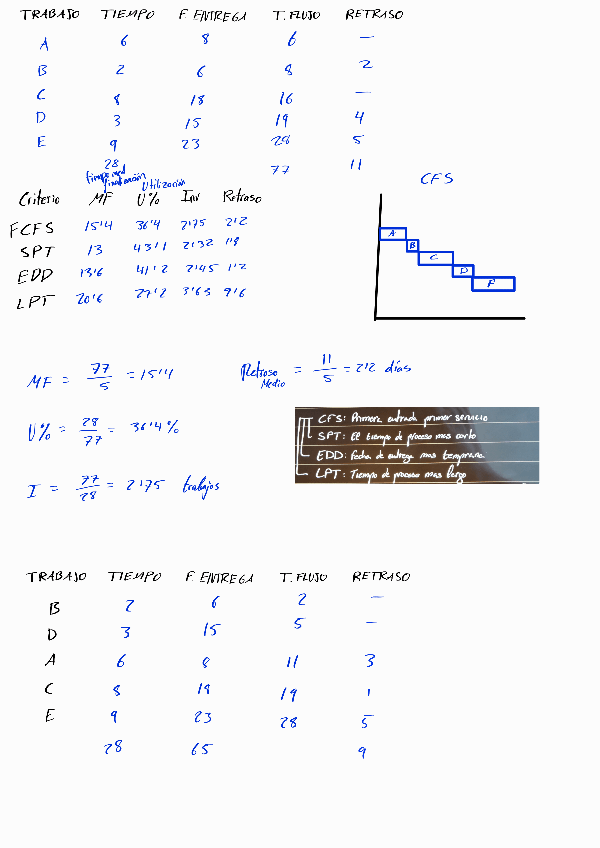 TRABAJO TIEMPO F. ENTREGA T. FLUJO RETRASO
A 6 8 6 —
B 2 6 8 2
C 8 18 16 —
D 3 15 19 4
E 9 23 28 5
28 77 11
Utilización
Criterio MF U% Inv Retraso
FCFS 15'4 36'4 2'75 2'2
SPT 13 43'1 2'32 1'8
EDD 13'6 41'2 2'45 1'2
LPT 20'6 27'2 3'68 9'6
CFS
A
B
C
D
MF = 77/5 = 15'4
Retraso Medio = 11/5 = 2'2 días
U% = 28/77 = 36'4%
I = 77/28 = 2'75 trabajos
CFS: Primera entrada primer servicio
SPT: El tiempo de proceso mas corto
EDD: Fecha de entrega mas temprana
LPT: Tiempo de proceso mas largo
TRABAJO TIEMPO F. ENTREGA T. FLUJO RETRASO
B 2 6 2 —
D 3 15 5 —
A 6 8 11 3
C 8 18 19 1
E 9 23 28 5
28 65 9